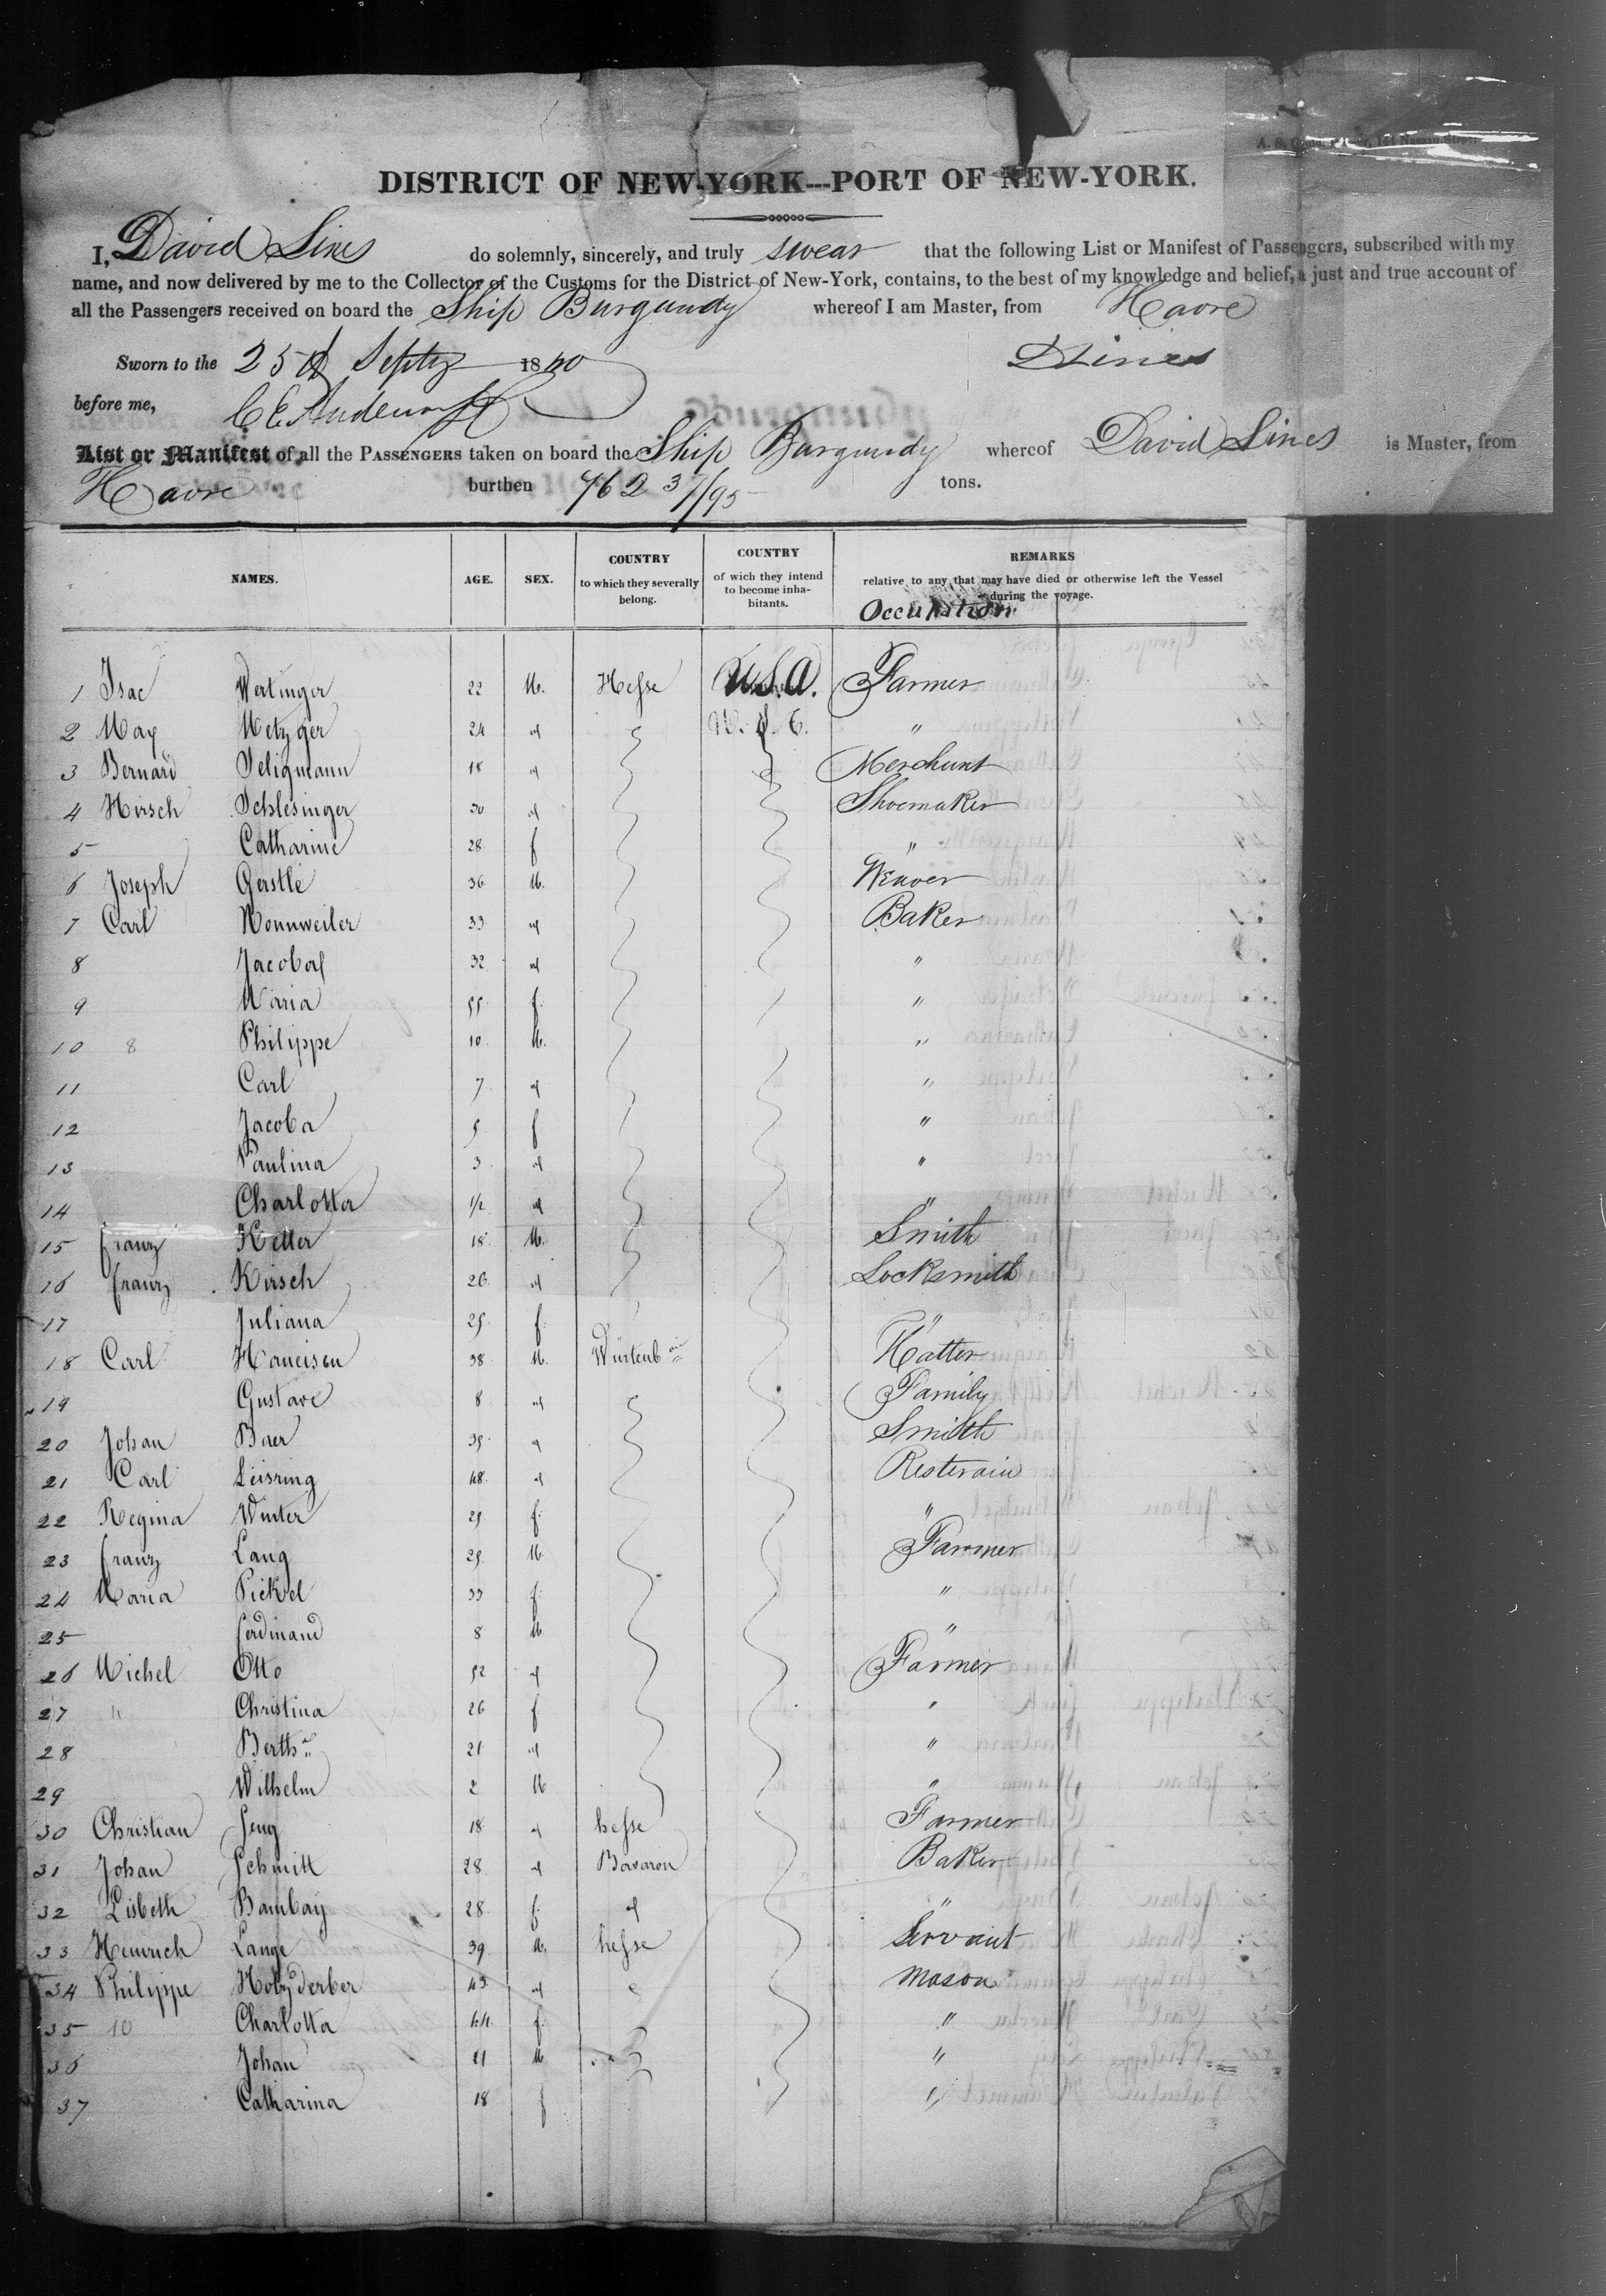 DISTRICT OF NEW-YORK---PORT OF NEW-YORK.
I, David Lines do solemnly, sincerely, and truly swear that the following List or Manifest of Passengers, subscribed with my
name, and now delivered by me to the Collector of the Customs for the District of New-York, contains, to the best of my knowledge and belief, a just and true account of
all the Passengers received on board the Ship Burgundy whereof I am Master, from Havre
Sworn to the 25th Septr 1840 DLines
before me,
List or Manifest of all the PASSENGERS taken on board the Ship Burgundy whereof David Lines is Master, from
Havre burthen 762 37/95 tons.
NAMES. AGE. SEX. COUNTRY to which they severally belong. COUNTRY of wich they intend to become inha-bitants. REMARKS relative to any that may have died or otherwise left the Vessel during the voyage.
Occupation
1 Isac Wertinger 22 M. Hesse U.S.A. Farmer
2 May Metzger 24 "
3 Bernard Seligmann 18 Merchant
4 Hirsch Schlesinger 30 Shoemaker
5 Catharine 28 f "
6 Joseph Gerstle 36 M. Weaver
7 Carl Nonnweiler 33 Baker
8 Jacoby 32 "
9 Maria 55 f. "
10 8 Philippe 10 M. "
11 Carl 7 "
12 Jacoba 5 f "
13 Paulina 3 "
14 Charlotta 1/2 "
15 franz Keller 18 M. Smith
16 franz Kirsch 26 Locksmith
17 Juliana 25 f. "
18 Carl Haueisen 38 M. Würtenb Hatter
19 Gustave 8 Family
20 Johan Baer 35 Smith
21 Carl Leisring 48 Resterain
22 Regina Winter 25 f. "
23 franz Lang 25 M. Farmer
24 Maria Pickel 33 f. "
25 ferdinand 8 M. "
26 Michel Otto 52 Farmer
27 " Christina 26 f "
28 Bertha 21 "
29 Wilhelm 2 M "
30 Christian Jung 18 hesse Farmer
31 Johan Schmitt 28 Bavaron Baker
32 Lisbeth Bambay 28 f. "
33 Heinrich Lange 39 M. hesse Servant
34 Philippe 43 Mason
35 10 Charlotta 44 f. "
36 Johan 21 M "
37 Catharina 18 f "